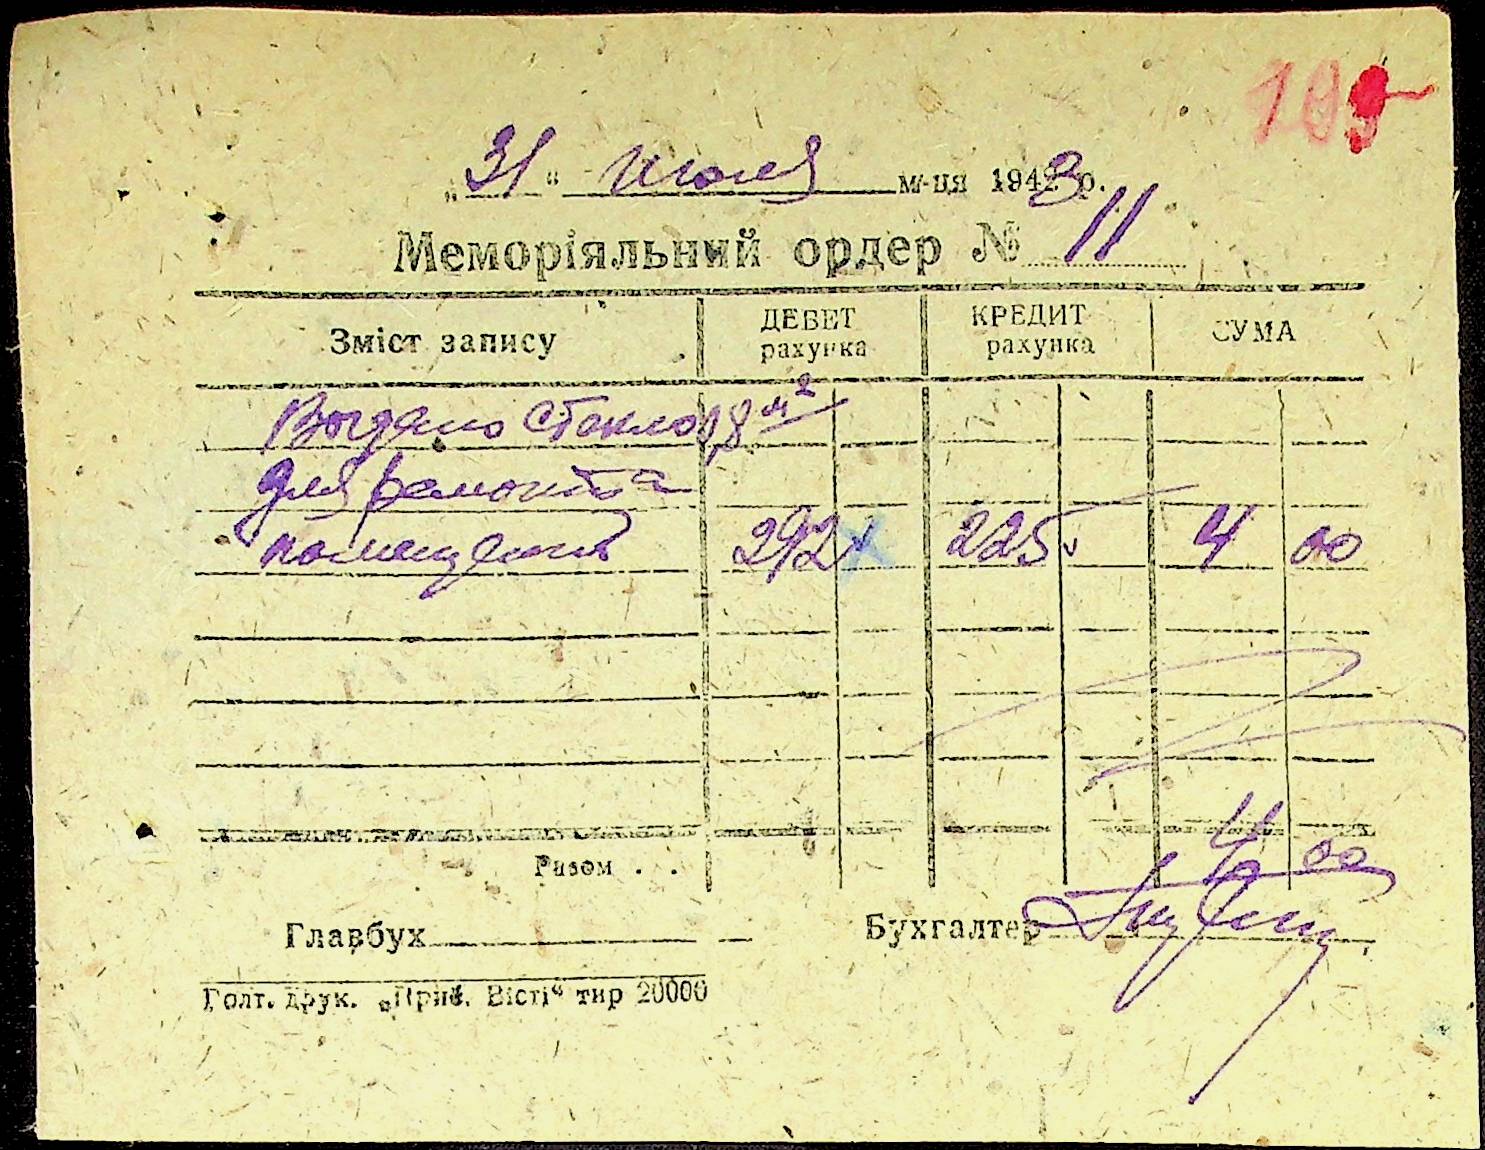 „31“ июля м-ця 1943 р.
Меморіяльний ордер № 11
Зміст запису ДЕБЕТ рахунка КРЕДИТ рахунка СУМА
Выдано стекло 1,8 м²
для ремонта
помещения 292 225 4 00
Разом . . 4 00
Главбух Бухгалтер
Голт. друк. „Приб. Вісті“ тир 20000